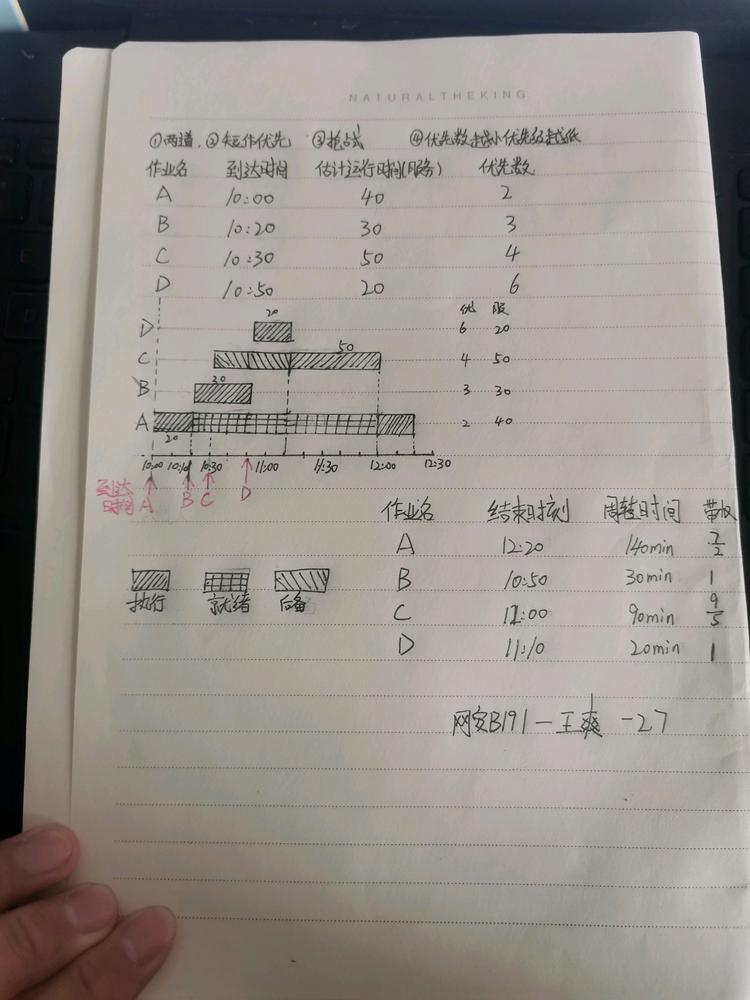 NATURALTHEKING
①两道, ②短作优先 ③抢占式 ④优先数越小优先级越低
作业名 到达时间 估计运行时间(服务) 优先数
A 10:00 40 2
B 10:20 30 3
C 10:30 50 4
D 10:50 20 6
20 优 服
D 6 20
50
C 4 50
B 3 30
A 2 40
20
10:00 10:30 11:00 11:30 12:00 12:30
到达时间 A B C D
作业名 结束时刻 周转时间 带权
A 12:20 140min 7/2
B 10:50 30min 1
C 12:00 90min 9/5
D 11:10 20min 1
执行 就绪 后备
网安B191-王爽-27